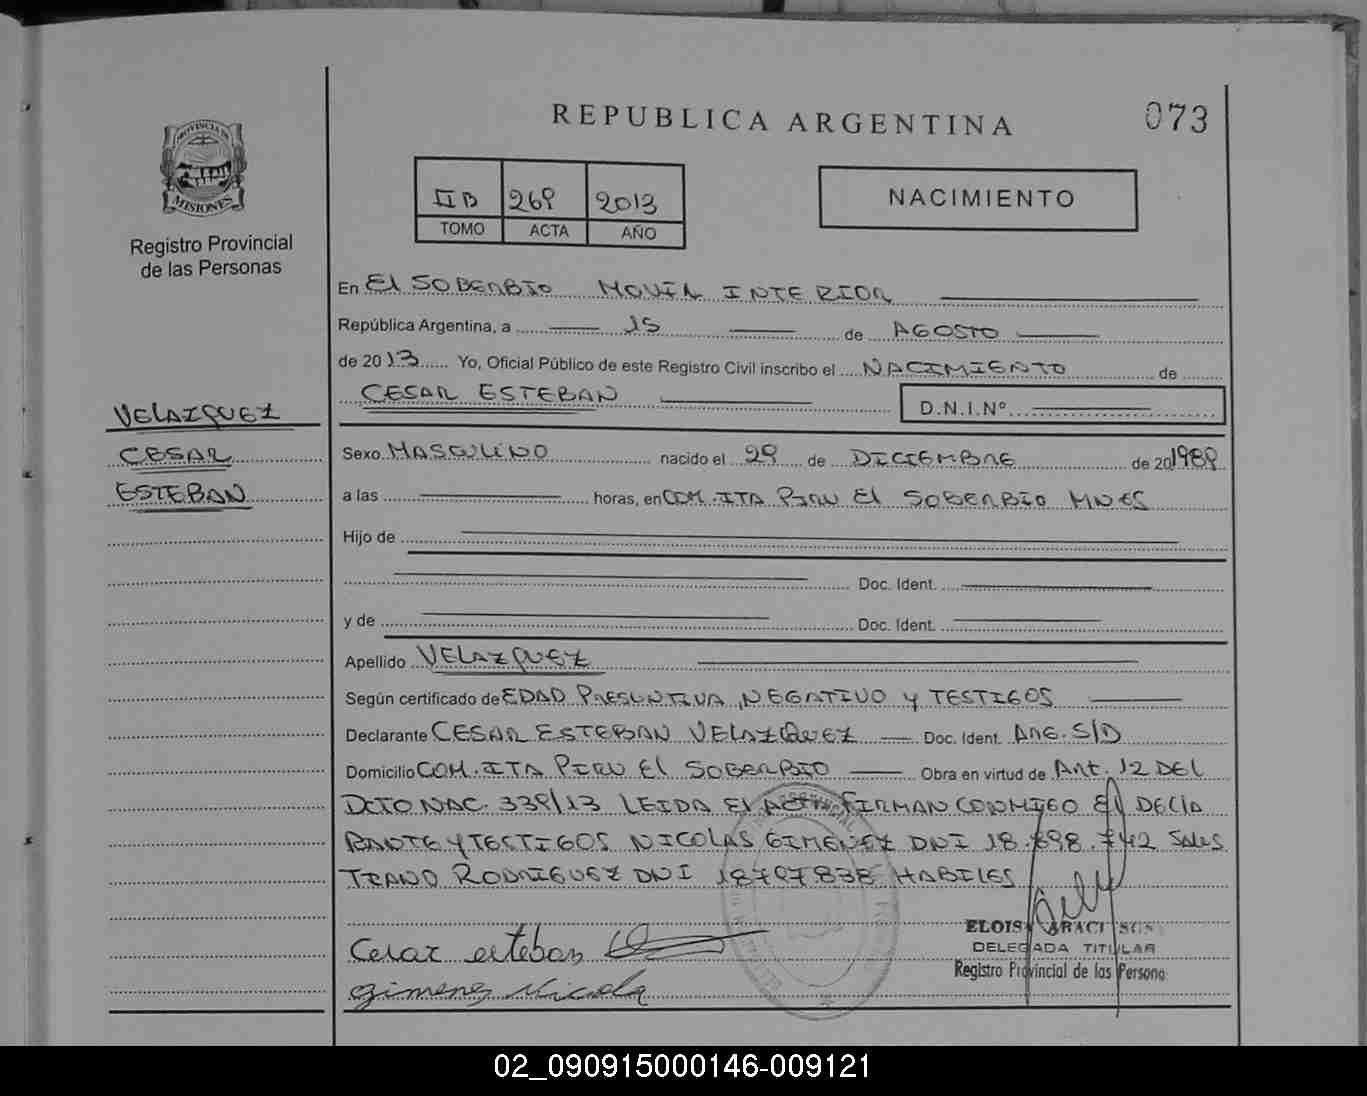 REPUBLICA ARGENTINA
073
PROVINCIA DE
MISIONES
Registro Provincial
de las Personas
IIB 269 2013
TOMO ACTA AÑO
NACIMIENTO
En El SOBERBIO MOVIL INTERIOR
República Argentina, a 15 de AGOSTO
de 2013 Yo, Oficial Público de este Registro Civil inscribo el NACIMIENTO de
CESAR ESTEBAN D.N.I.Nº
VELAZQUEZ
CESAR
ESTEBAN
Sexo MASCULINO nacido el 29 de DICIEMBRE de 201989
a las horas, en COM. ITA PIRU El SOBERBIO MNES
Hijo de
Doc. Ident.
y de Doc. Ident.
Apellido VELAZQUEZ
Según certificado de EDAD PRESUNTIVA, NEGATIVO y TESTIGOS
Declarante CESAR ESTEBAN VELAZQUEZ Doc. Ident. ARG. S/D
Domicilio COM. ITA PIRU El SOBERBIO Obra en virtud de Art. 12 DEL
DCTO NAC. 339/13 LEIDA El ACTA FIRMAN CONMIGO El DECLA
RANTE y TESTIGOS NICOLAS GIMENEZ DNI 18.898.742 SALES
TRANO RODRIGUEZ DNI 18797838 HABILES
Cesar esteban
gimenez Nicola
DELEGADA TITULAR
Registro Provincial de las Persona
02_090915000146-009121